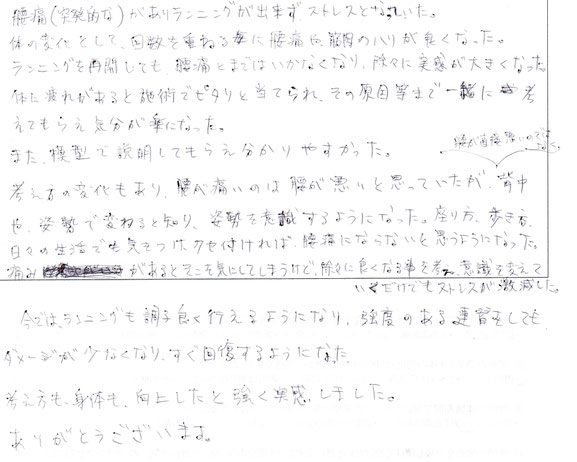 腰痛(突発的な)がありランニングが出来ず、ストレスとなっていた。
体の変化として、回数を重ねる毎に腰痛や、筋肉のハリが良くなった。
ランニングを再開しても、腰痛とまではいかなくなり、徐々に実感が大きくなった。
体に疲れがあると施術でピタリと当てられ、その原因等まで一緒に考
えてもらえ気分が楽になった。
また、模型で説明してもらえ分かりやすかった。
腰が直接悪いのではなく、
考え方の変化もあり、腰が痛いのは腰が悪いと思っていたが、背中
や、姿勢で変わると知り、姿勢を意識するようになった。座り方、歩き方、
日々の生活でも気をつけ、クセ付ければ、腰痛にならないと思うようになった。
痛みがあるとそこを気にしてしまうけど、徐々に良くなる事を考え、意識を変えて
いくだけでもストレスが激減した。
今では、ランニングも調子良く行えるようになり、強度のある練習をしても、
ダメージが少なくなり、すぐ回復するようになった。
考え方も、身体も、向上したと強く実感しました。
ありがとうございます。